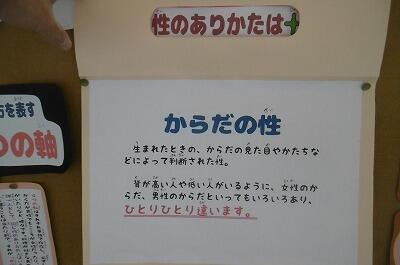 性のありかたは+
方を表す
つの軸
からだの性
生まれたときの、からだの見た目やかたちな
どによって判断された性。
背が高い人や低い人がいるように、女性のか
らだ、男性のからだといってもいろいろあり、
ひとりひとり違います。